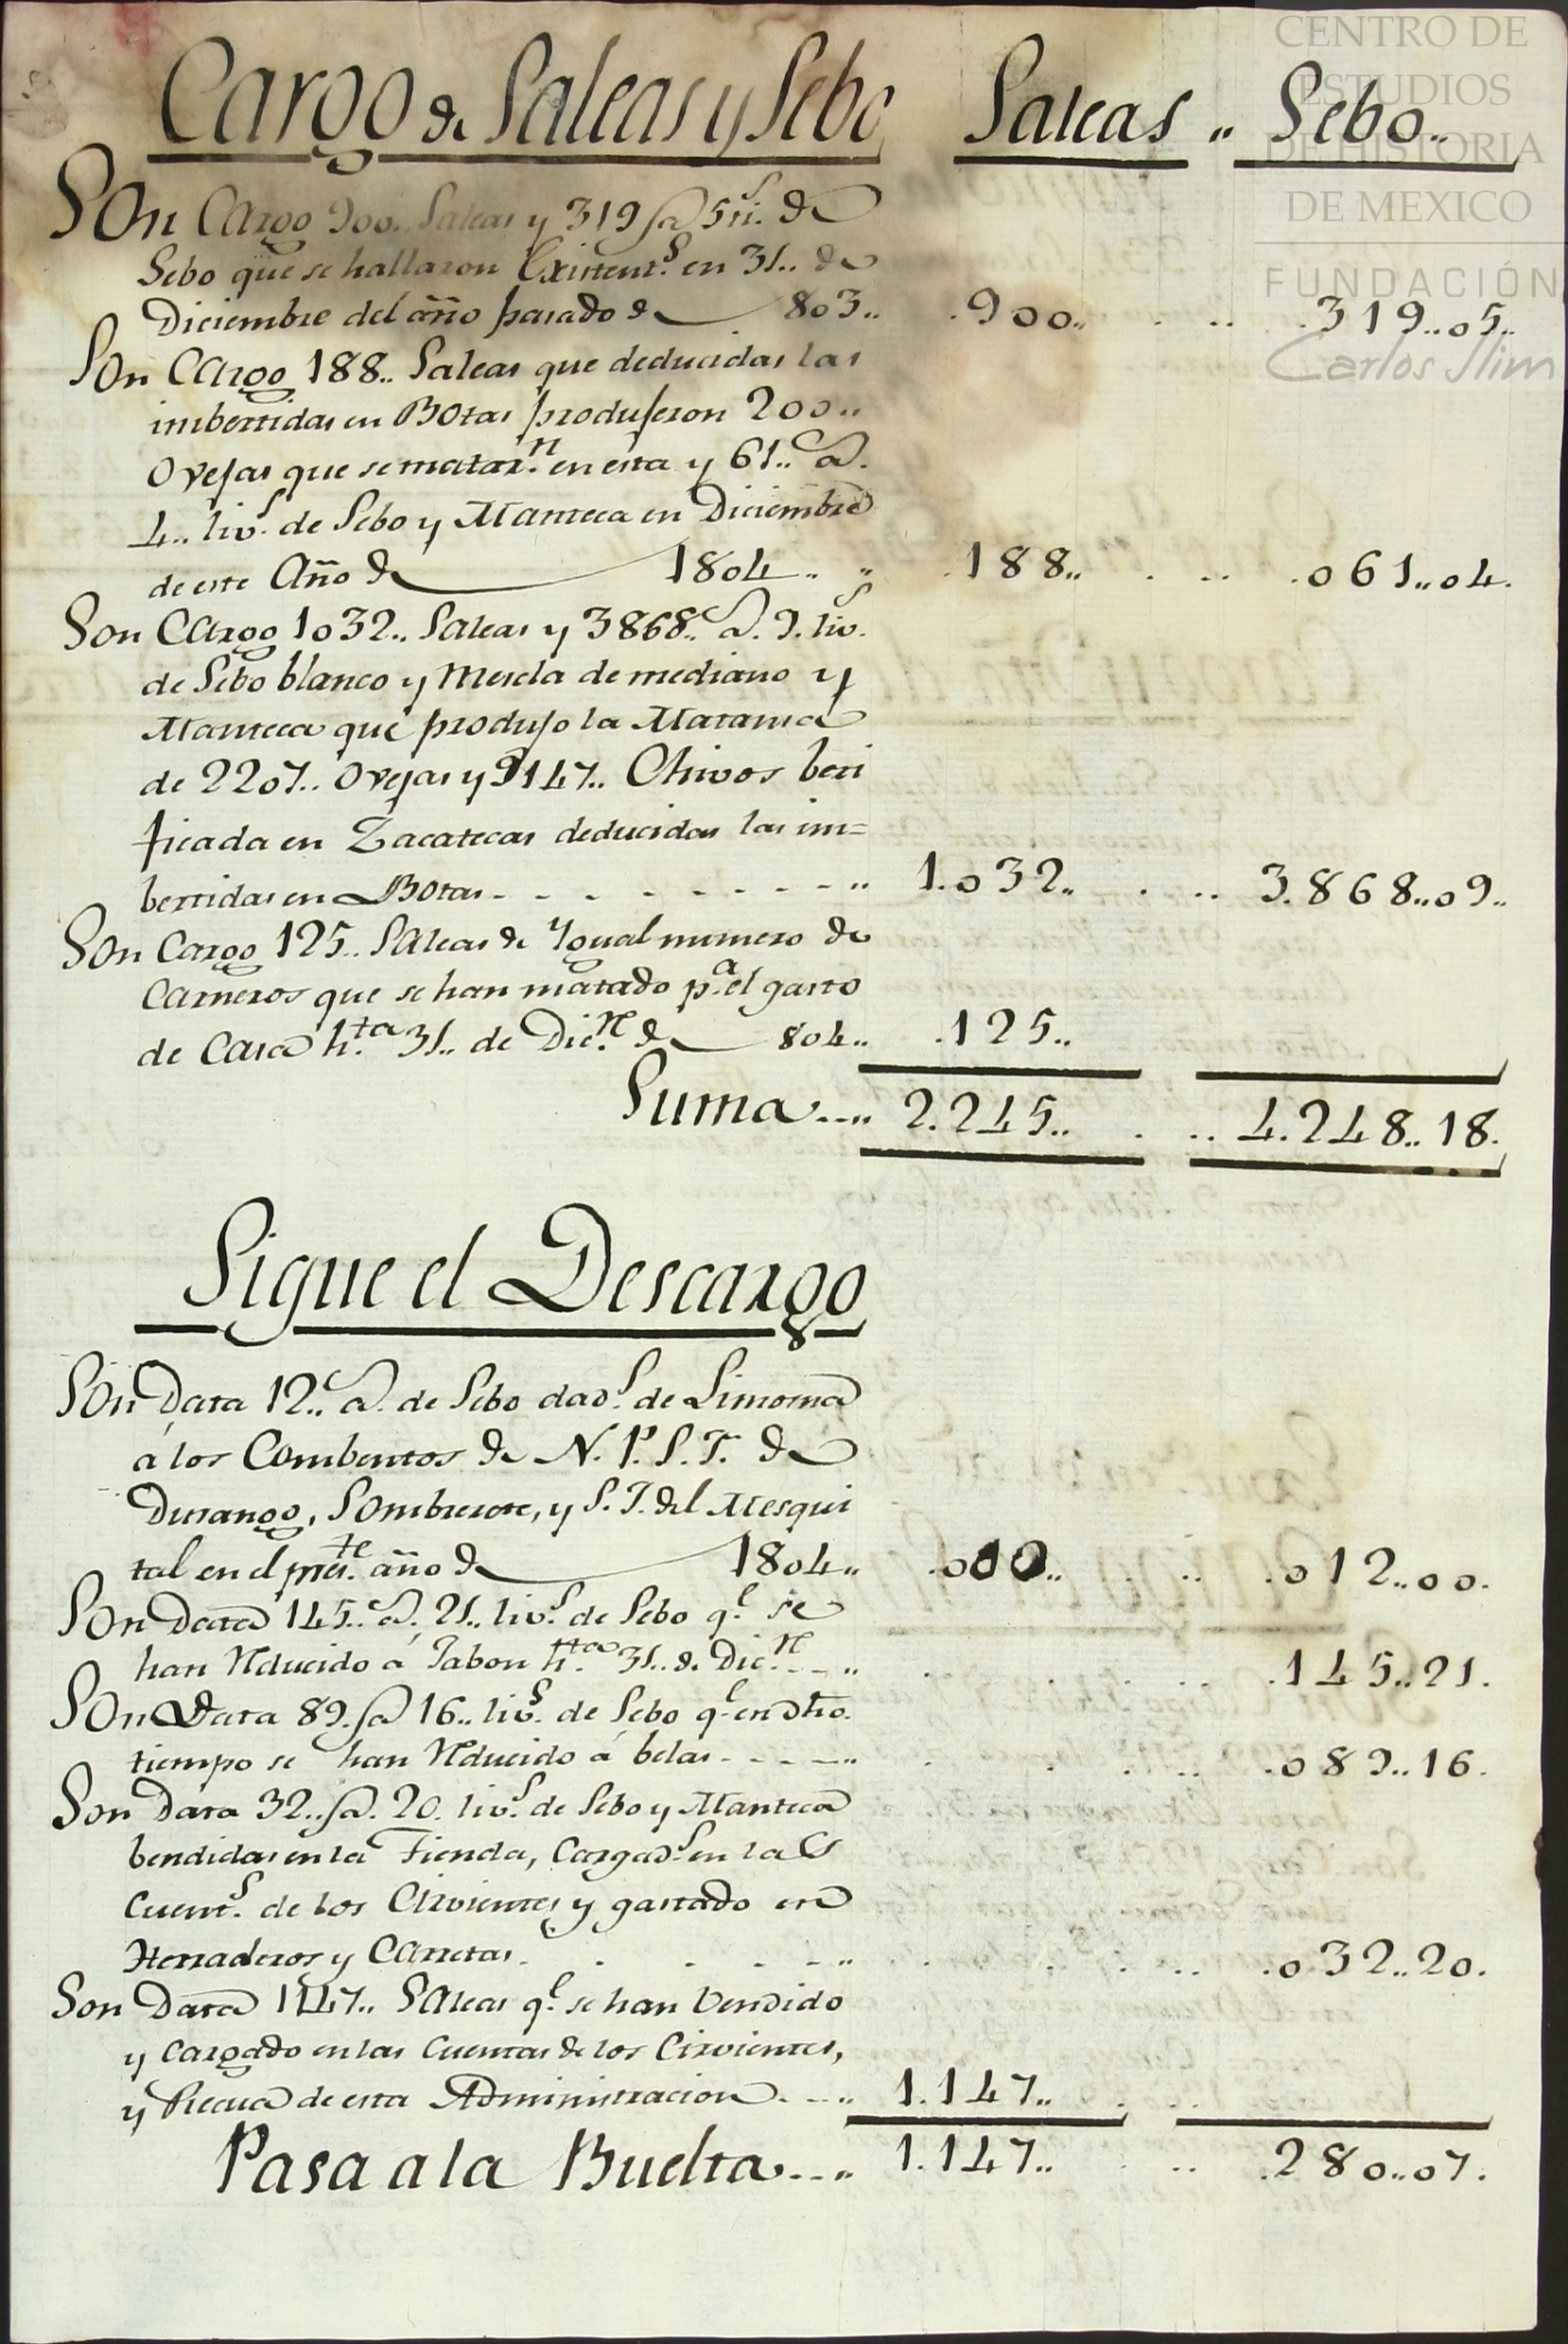 CENTRO DE
ESTUDIOS
DE HISTORIA
DE MEXICO
FUNDACIÓN
Carlos Slim
Cargo de Saleas y Sebo Saleas .. Sebo..
Son Cargo 900. Saleas y 319 @ 5 li.s de
Sebo que se hallaron Existent.s en 31.. de
Diciembre del año pasado de 803.. .900.. . .. .319..05..
Son Cargo 188.. Saleas que deducidas las
imbertidas en Botas produjeron 200..
Ovejas que se matar.n en esta y 61.. @.
4.. liv.s de Sebo y Manteca en Diciembre
de este Año de 1804.. .. .188.. . .. .061..04.
Son Cargo 1032.. Saleas y 3868.. @. 9. liv.s
de Sebo blanco y Mescla de mediano y
Manteca que produjo la Matansa
de 2207.. Ovejas y 9147.. Chivos beri
ficada en Zacatecas deducidas las im=
bertidas en Botas - - - - - - - - .. 1.032.. . .. 3.868..09..
Son Cargo 125.. Saleas de Ygual numero de
Carneros que se han matado p.a el gasto
de Casa h.ta 31.. de Dic.re de 804.. .125..
Suma.... 2.245.. . .. 4.248..18.
Sigue el Descargo
Son Data 12.. @. de Sebo dad.s de Limosna
á los Combentos de N. P. S. F. de
Durango, Sombrerete, y S. F. del Mesqui
tal en el pres.te año de 1804.. .000.. . .. .012..00.
Son Data 145.. @. 21.. liv.s de Sebo q.e se
han Reducido á Jabon h.ta 31.. de Dic.re - - .. . . . .. .145..21.
Son Data 89. @ 16.. liv.s de Sebo q.e en dho.
tiempo se han Reducido á belas - - - - .. . . . .. .089..16.
Son Data 32.. @. 20. liv.s de Sebo y Manteca
bendidas en la Tienda, Cargad.s en las
Cuent.s de los Cirvientes y gastado en
Herraderos y Carretas. . - - - .. . . . .. .032..20.
Son Data 1147.. Saleas q.e se han Vendido
y Cargado en las Cuentas de los Cirvientes,
y Recua de esta Administracion - - .. 1.147.. . ..
Pasa a la Buelta.... 1.147.. . .. .280..07.